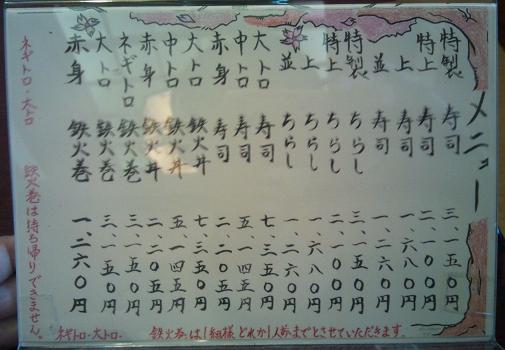 メニュー
特製 寿司 三、一五〇円
特上 寿司 二、一〇〇円
上 寿司 一、六八〇円
並 寿司 一、二六〇円
特製 ちらし 三、一五〇円
特上 ちらし 二、一〇〇円
上 ちらし 一、六八〇円
並 ちらし 一、二六〇円
大トロ 寿司 七、三五〇円
中トロ 寿司 五、一四五円
赤身 寿司 二、二〇五円
大トロ 鉄火丼 七、三五〇円
中トロ 鉄火丼 五、一四五円
赤身 鉄火丼 二、二〇五円
ネギトロ 鉄火巻 三、一五〇円
大トロ 鉄火巻 三、一五〇円
赤身 鉄火巻 一、二六〇円
ネギトロ・大トロ 鉄火巻は待ち帰りできません。
ネギトロ・大トロ・ 鉄火巻は1組様どれか1人前までとさせていただきます。